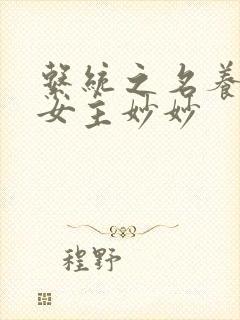 繫統之名養
女主妙妙
程野